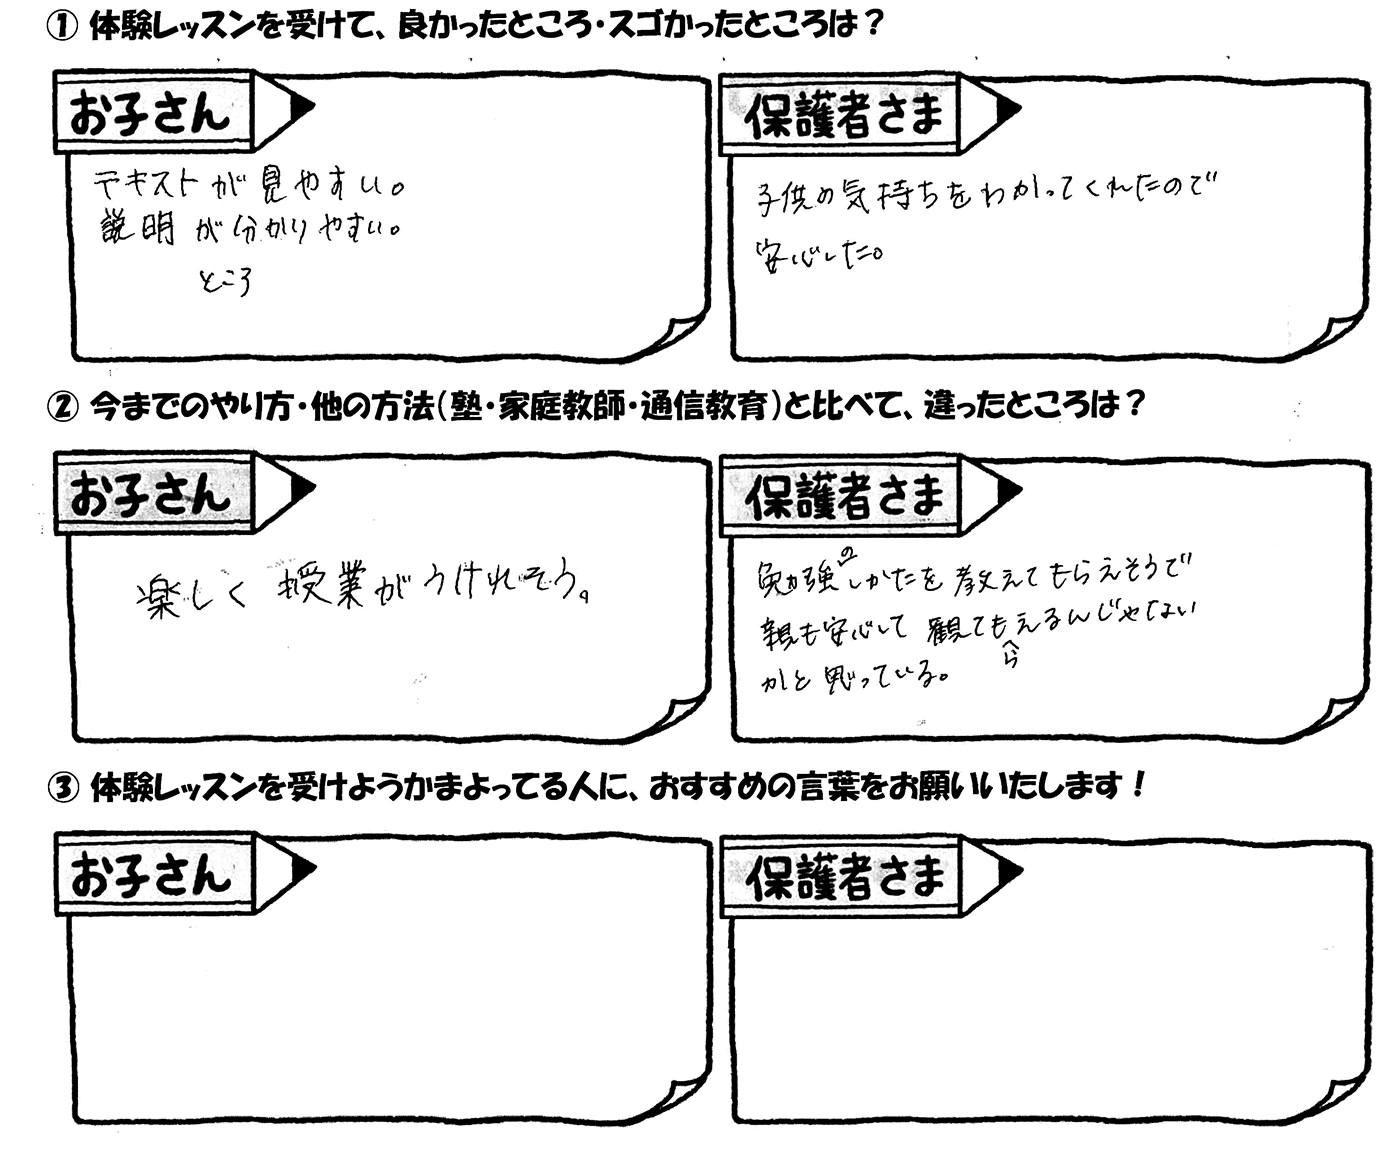 ① 体験レッスンを受けて、良かったところ・スゴかったところは？
お子さん
テキストが見やすい。
説明が分かりやすい。
ところ
保護者さま
子供の気持ちをわかってくれたので
安心した。
② 今までのやり方・他の方法（塾・家庭教師・通信教育）と比べて、違ったところは？
お子さん
楽しく授業がうけれそう。
保護者さま
勉強のしかたを教えてもらえそうで
親も安心して観てもらえるんじゃない
かと思っている。
③ 体験レッスンを受けようかまよってる人に、おすすめの言葉をお願いいたします！
お子さん
保護者さま